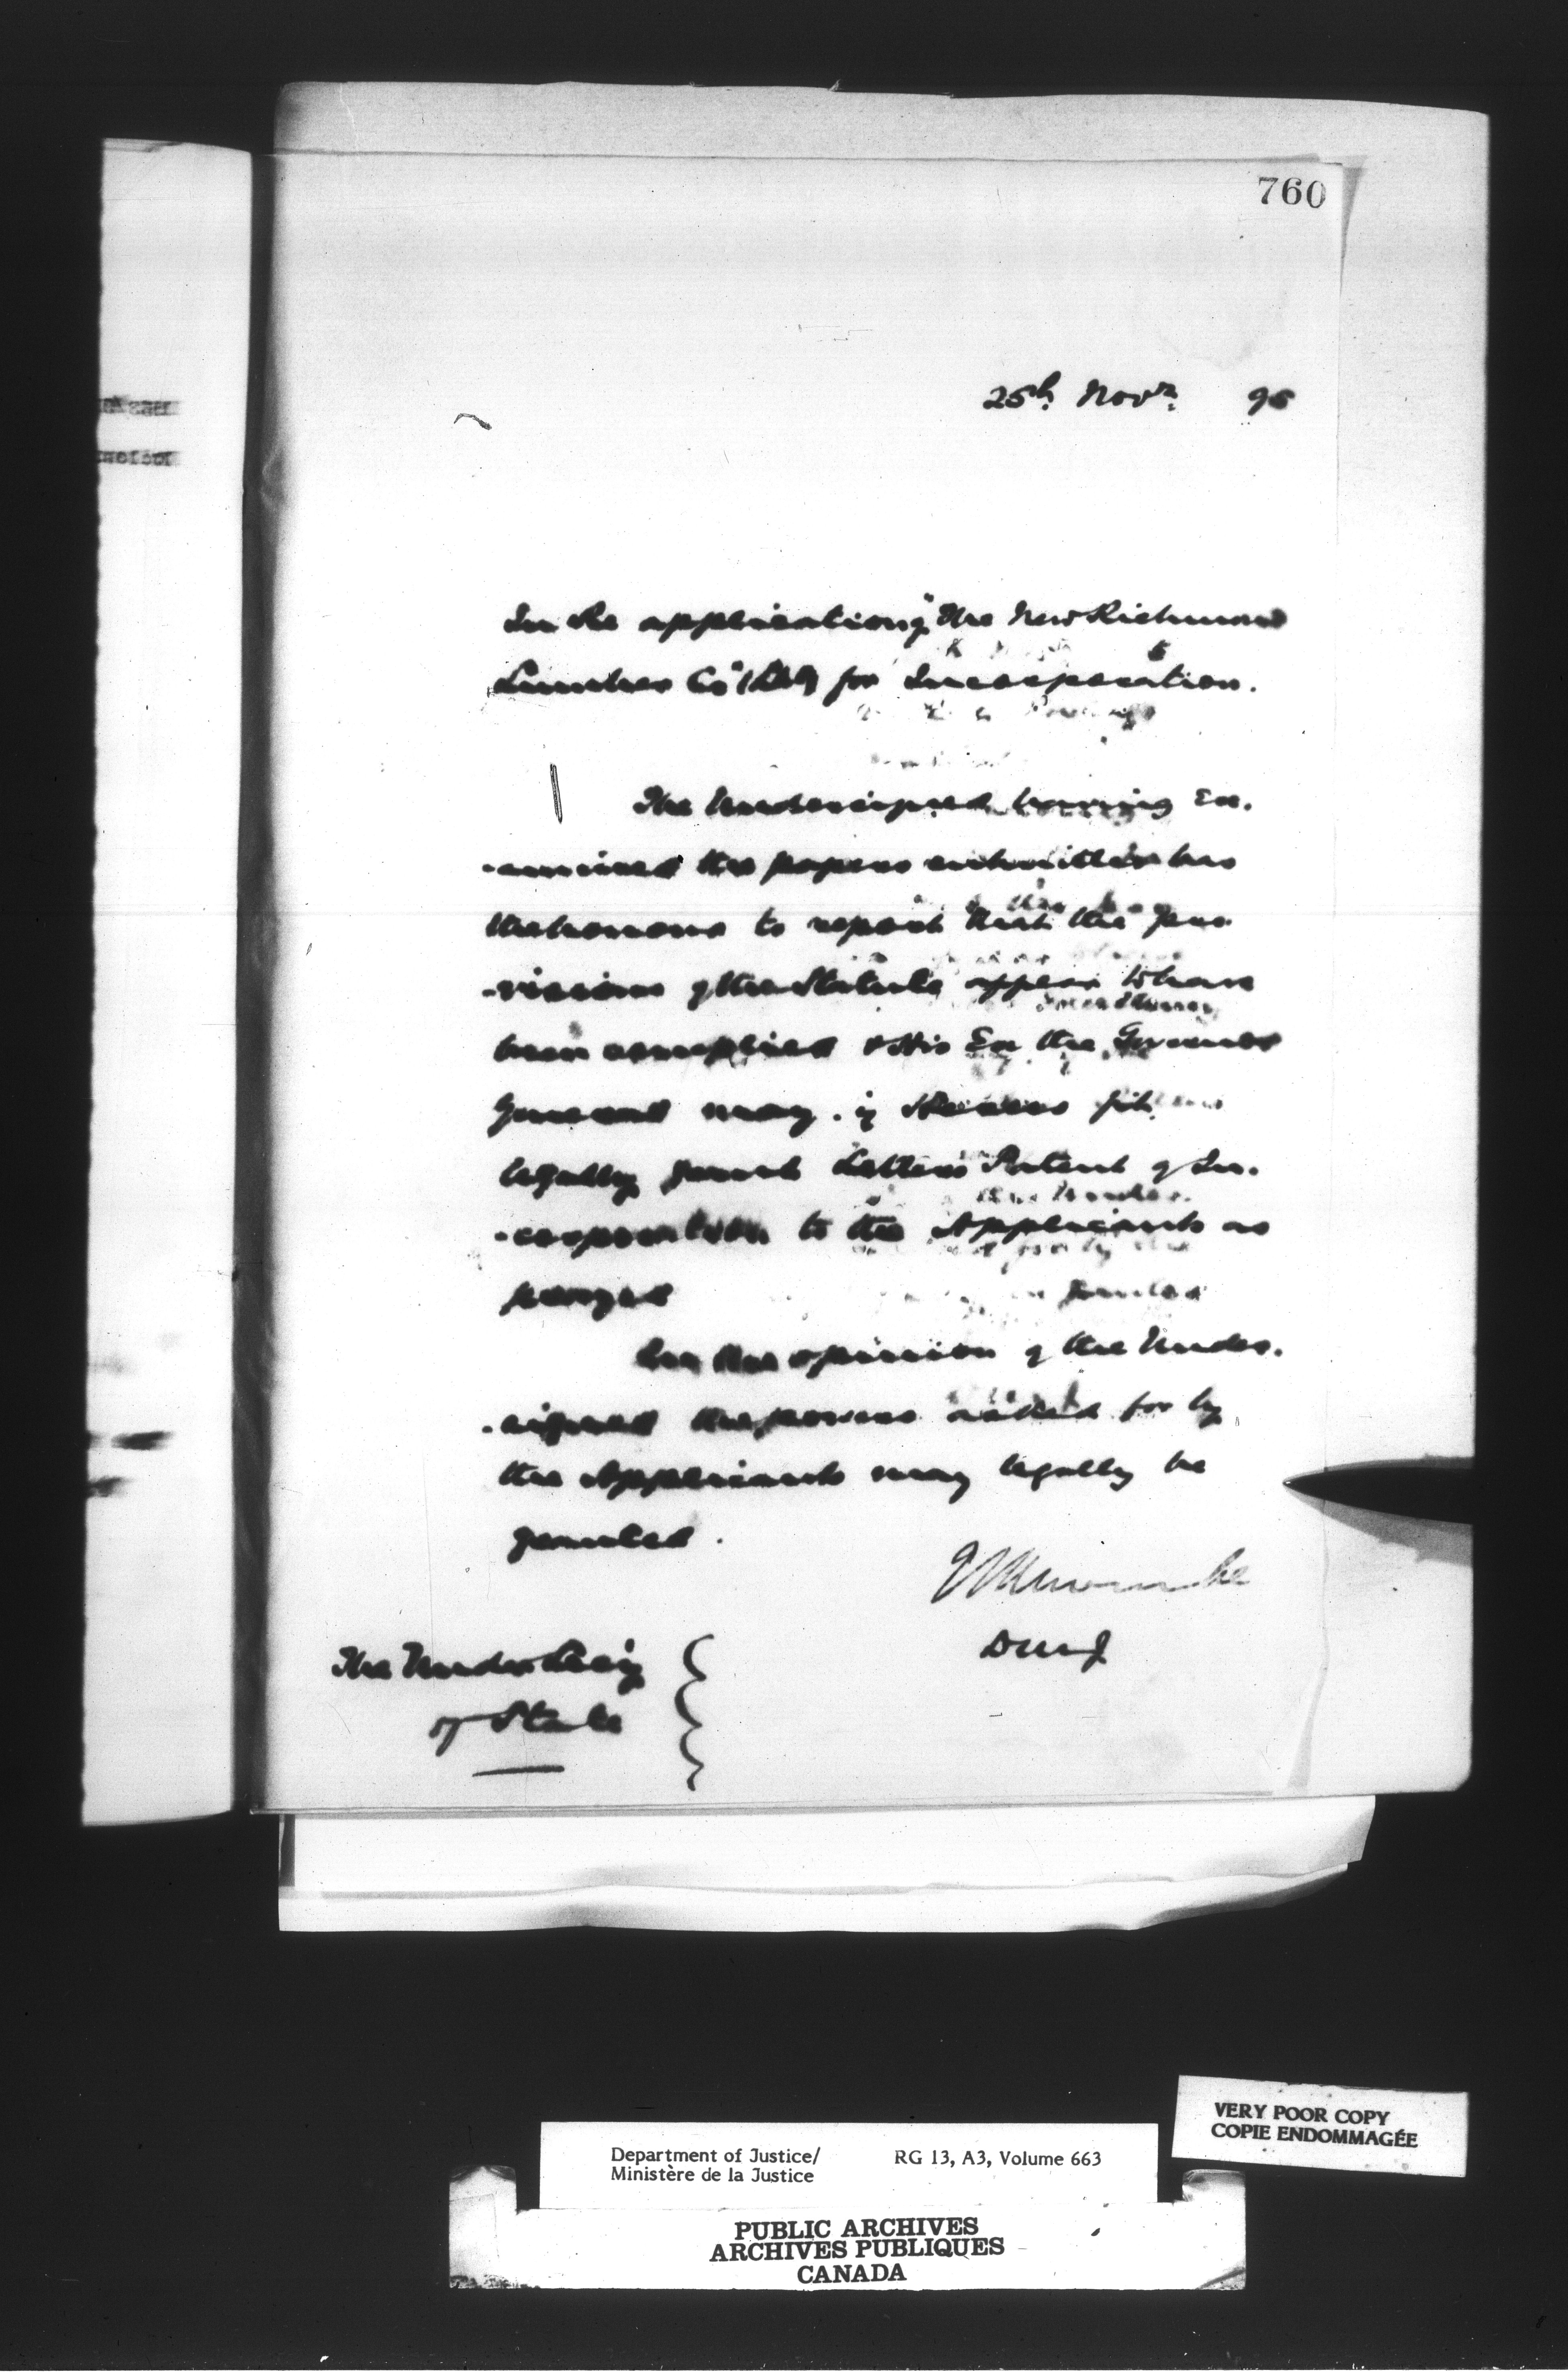 760
25th Novr. 95
In Re application of "The New Richmond
Lumber Co" (Ltd) for Incorporation.
The Undersigned having Ex-
-amined the papers submitted has
the honour to report that the pro-
-visions of the Statute appear to have
been complied & His Ex the Governor
General may, if He sees fit
legally grant Letters Patent of In-
-corporation to the Applicants as
prayed
In the opinion of the Under-
-signed the powers asked for by
the Applicants may legally be
granted.
E L Newcombe
DMJ
The Under Secy
of State
VERY POOR COPY
COPIE ENDOMMAGÉE
Department of Justice/ RG 13, A3, Volume 663
Ministère de la Justice
PUBLIC ARCHIVES
ARCHIVES PUBLIQUES
CANADA